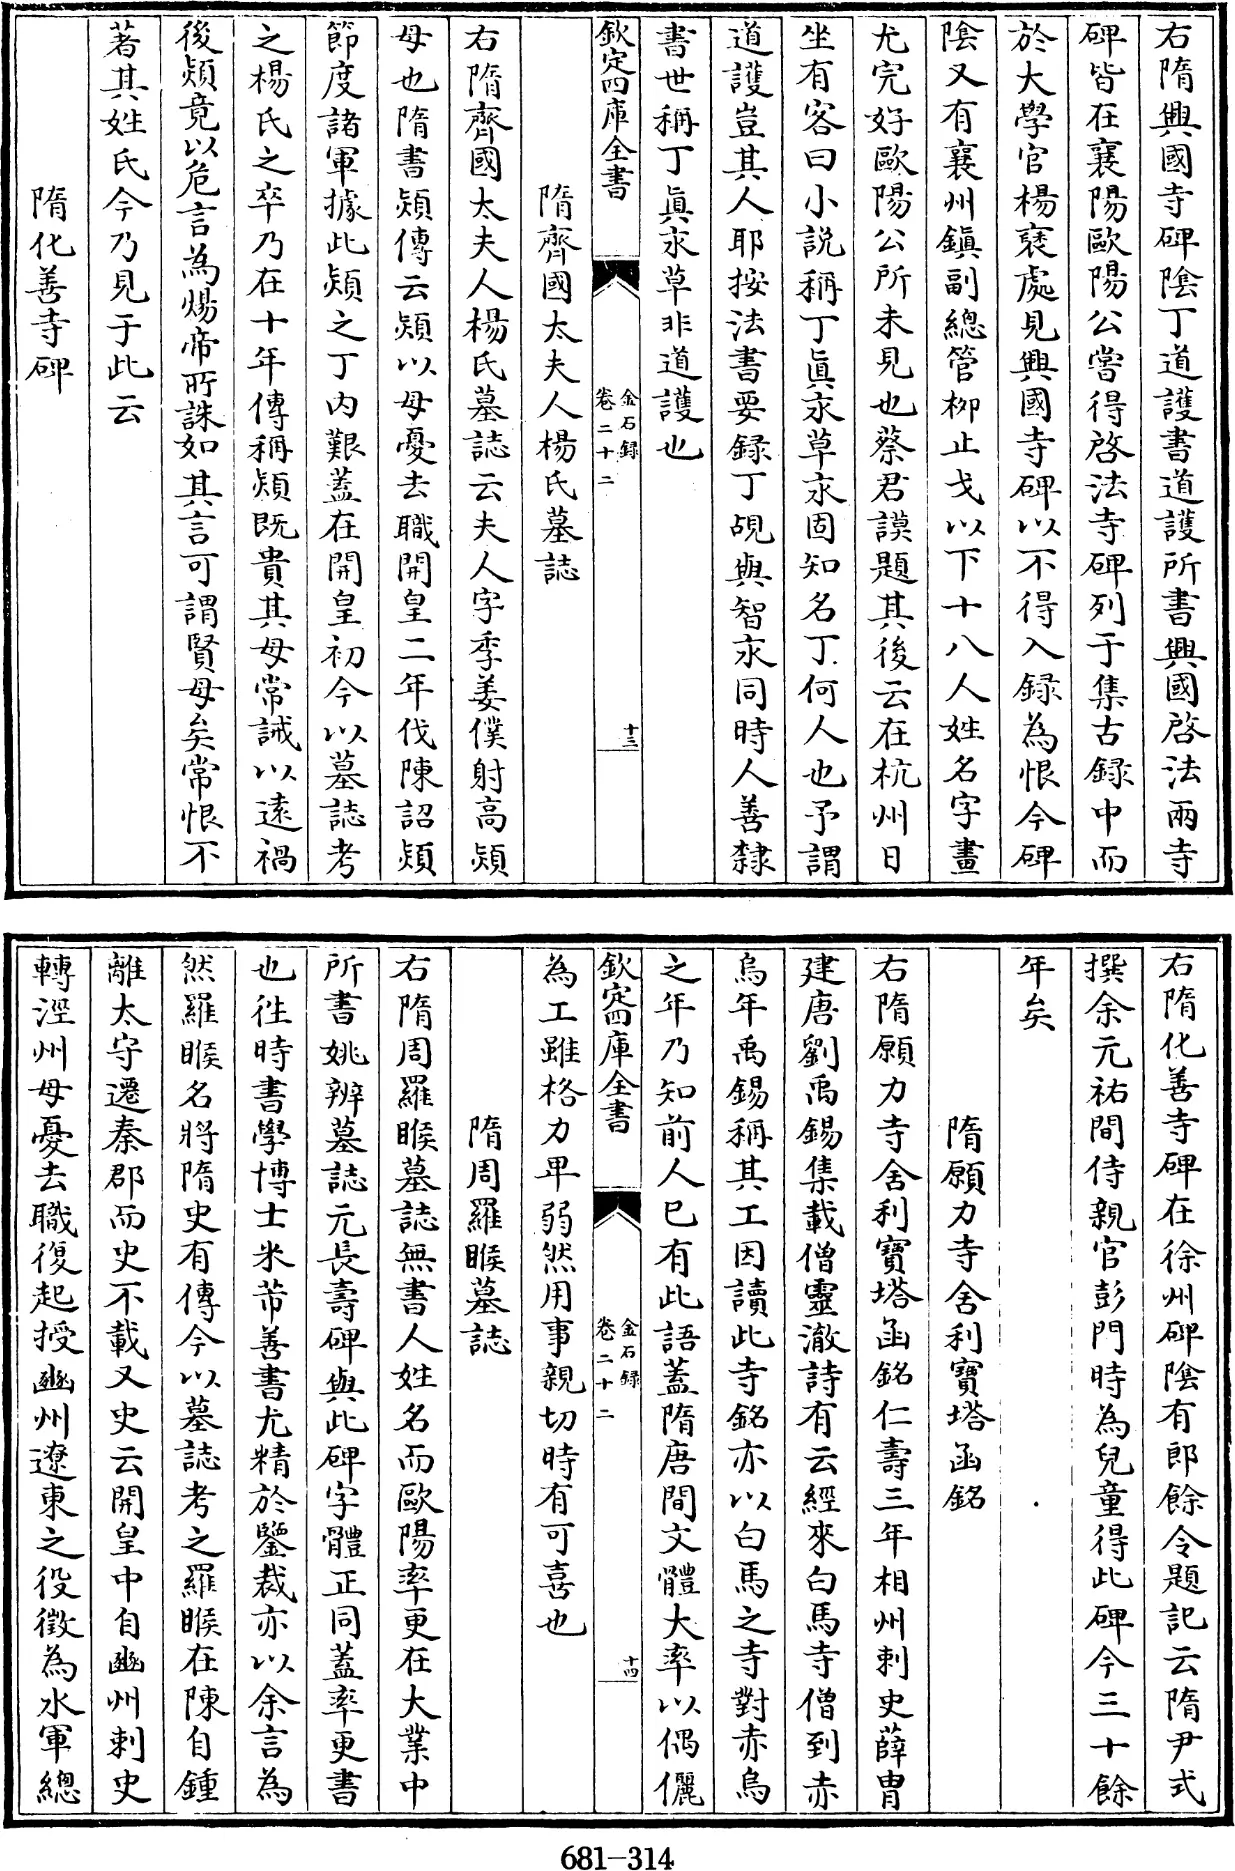 右隋興國寺碑陰丁道護書道護所書興國啓法兩寺
碑皆在襄陽歐陽公嘗得啓法寺碑列于集古録中而
於大學官楊褒處見興國寺碑以不得入録為恨今碑
陰又有襄州鎮副總管柳止戈以下十八人姓名字畫
尤完好歐陽公所未見也蔡君謨題其後云在杭州日
坐有客曰小說稱丁真永草永固知名丁何人也予謂
道護豈其人耶按法書要録丁覘與智永同時人善隸
書世稱丁真永草非道護也
欽定四庫全書
金石録
卷二十二
十三
隋齊國太夫人楊氏墓誌
右隋齊國太夫人楊氏墓誌云夫人字季姜僕射高熲
母也隋書熲傳云熲以母憂去職開皇二年伐陳詔熲
節度諸軍據此熲之丁内艱蓋在開皇初今以墓誌考
之楊氏之卒乃在十年傳稱熲既貴其母常誡以遠禍
後熲竟以危言為煬帝所誅如其言可謂賢母矣常恨不
著其姓氏今乃見于此云
隋化善寺碑
右隋化善寺碑在徐州碑陰有郎餘令題記云隋尹式
撰余元祐間侍親官彭門時為兒童得此碑今三十餘
年矣
隋願力寺舍利寶塔函銘
右隋願力寺舍利寶塔函銘仁壽三年相州刺史薛胄
建唐劉禹錫集載僧靈澈詩有云經來白馬寺僧到赤
烏年禹錫稱其工因讀此寺銘亦以白馬之寺對赤烏
之年乃知前人已有此語蓋隋唐間文體大率以偶儷
欽定四庫全書
金石録
卷二十二
十四
為工雖格力卑弱然用事親切時有可喜也
隋周羅睺墓誌
右隋周羅睺墓誌無書人姓名而歐陽率更在大業中
所書姚辨墓誌元長壽碑與此碑字體正同蓋率更書
也徃時書學博士米芾善書尤精於鑒裁亦以余言為
然羅睺名將隋史有傳今以墓誌考之羅睺在陳自鍾
離太守遷秦郡而史不載又史云開皇中自豳州刺史
轉涇州母憂去職復起授豳州遼東之役徵為水軍總
681-314